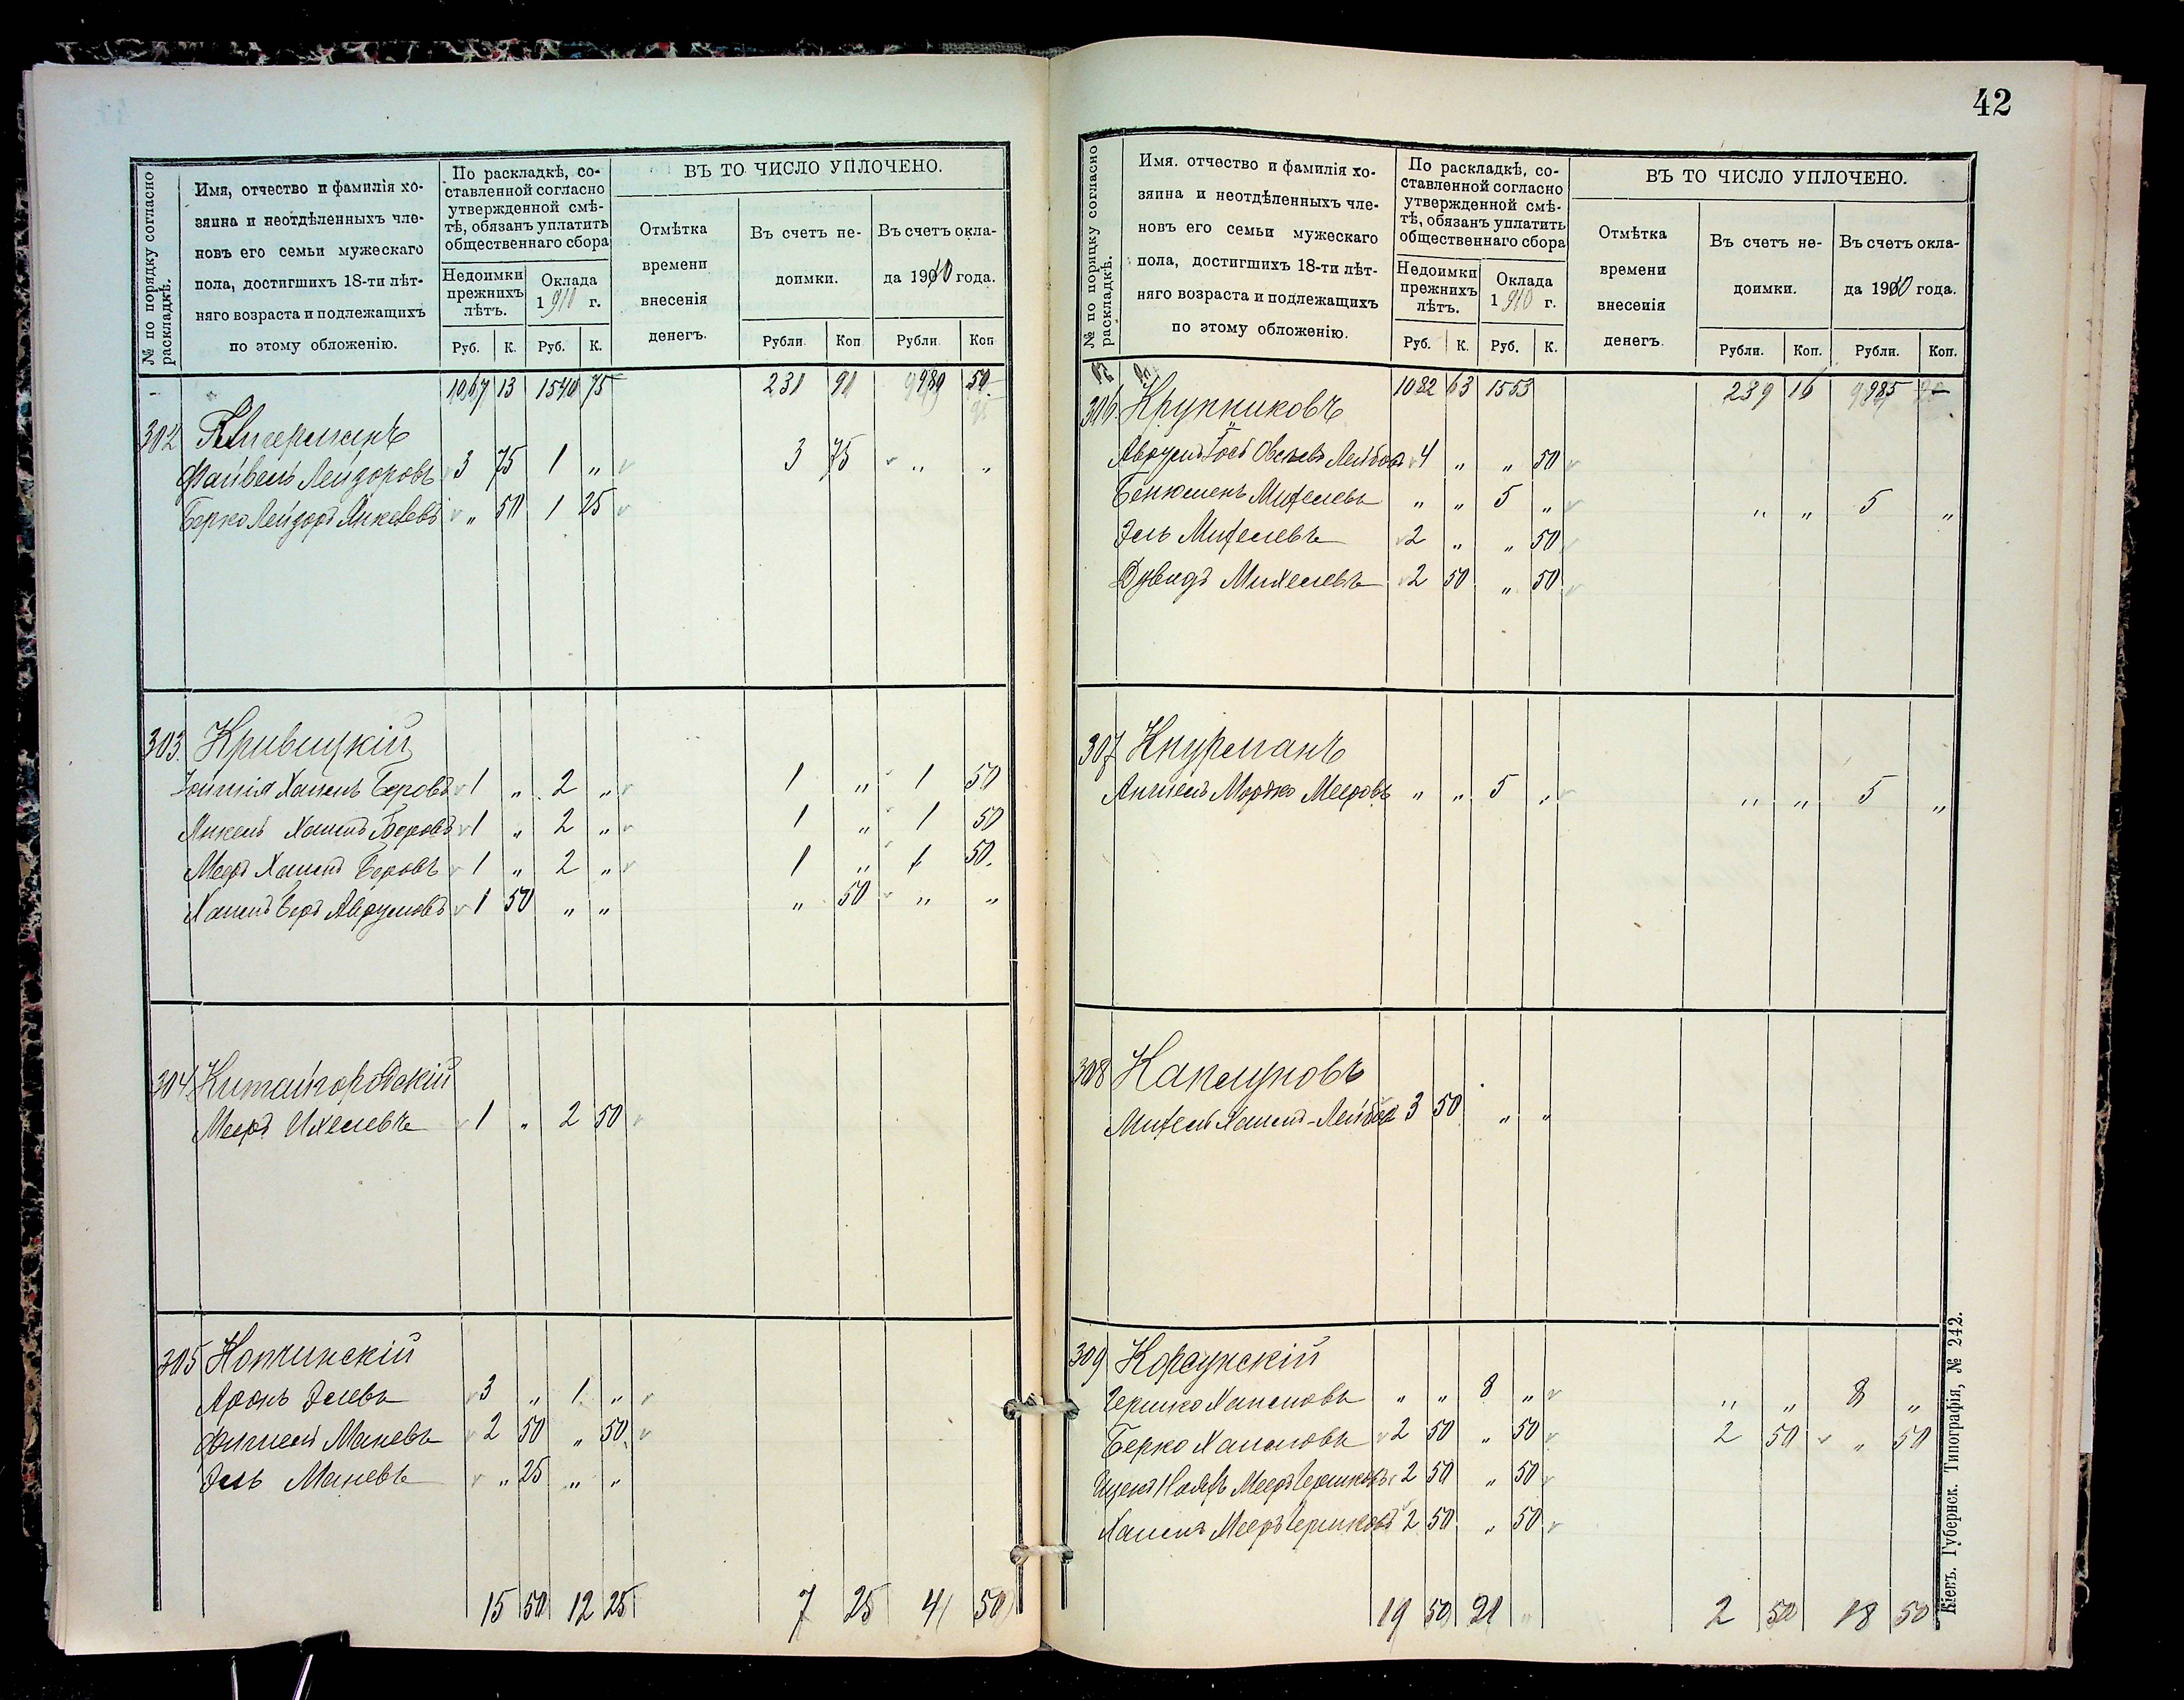 № по порядку согласно раскладкѣ.
Имя, отчество и фамилія хо-
зяина и неотдѣленныхъ чле-
новъ его семьи мужескаго
пола, достигшихъ 18-ти лѣт-
няго возраста и подлежащихъ
по этому обложенію.
По раскладкѣ, со-
ставленной согласно
утвержденной смѣ-
тѣ, обязанъ уплатить
общественнаго сбора
Недоимки прежнихъ лѣтъ.
Оклада 1910 г.
ВЪ ТО ЧИСЛО УПЛОЧЕНО.
Отмѣтка времени внесенія денегъ.
Въ счетъ не-
доимки.
Въ счетъ окла-
да 1910 года.
Руб. К. Руб. К. Рубли. Коп. Рубли. Коп.
1067 13 1540 75 231 91
302
Файвель Лейзоровъ 3 75 1 „ 3 75 „ „
Берко Лейзоръ Янкелевъ „ 50 1 25
303. Кривицкій
Хаимъ Беровъ 1 „ 2 „ 1 „ 1 50
Янкель Хаимъ Беровъ 1 „ 2 „ 1 „ 1 50
Мееръ Хаимъ Беровъ 1 „ 2 „ 1 „ 1 50.
Хаимъ Беръ Аврумовъ 1 50 „ „ „ 50 „ „
304. Китайгородскій
Мееръ Ихелевъ 1 „ 2 50
305 Копчинскій
Аронъ Элевъ 3 „ 1 „
Фишель Маневъ 2 50 „ 50
Эль Маневъ „ 25 „ „
15 50 12 25 7 25 4 50
42
№ по порядку согласно раскладкѣ.
Имя, отчество и фамилія хо-
зяина и неотдѣленныхъ чле-
новъ его семьи мужескаго
пола, достигшихъ 18-ти лѣт-
няго возраста и подлежащихъ
по этому обложенію.
По раскладкѣ, со-
ставленной согласно
утвержденной смѣ-
тѣ, обязанъ уплатить
общественнаго сбора
Недоимки прежнихъ лѣтъ.
Оклада 1910 г.
ВЪ ТО ЧИСЛО УПЛОЧЕНО.
Отмѣтка времени внесенія денегъ.
Въ счетъ не-
доимки.
Въ счетъ окла-
да 1910 года.
Руб. К. Руб. К. Рубли. Коп. Рубли. Коп.
1082 63 1553 239 16 985
306. Крупниковъ
Аврумъ Іось Лейбовъ 4 „ „ 50
Бенюменъ Михелевъ „ „ 5 „ „ „ 5 „
Эль Михелевъ 2 „ „ 50
Дувидъ Михелевъ 2 50 „ 50
307 Кнурманъ
Анчель Мордко Мееровъ „ „ 5 „ „ „ 5 „
308 Капсуновъ
Михель Хаимъ-Лейбовъ 3 50 „ „
309 Корсунскій
Гершко Хаимовъ „ „ 8 „ „ „ 8 „
Берко Хаимовъ 2 50 „ 50 2 50 „ 50
Ицекъ Мееръ Гершковъ 2 50 „ 50
Хаимъ Мееръ Гершковъ 2 50 „ 50
19 50 21 „ 2 50 18 50
Кіевъ. Губернск. Типографія, № 242.